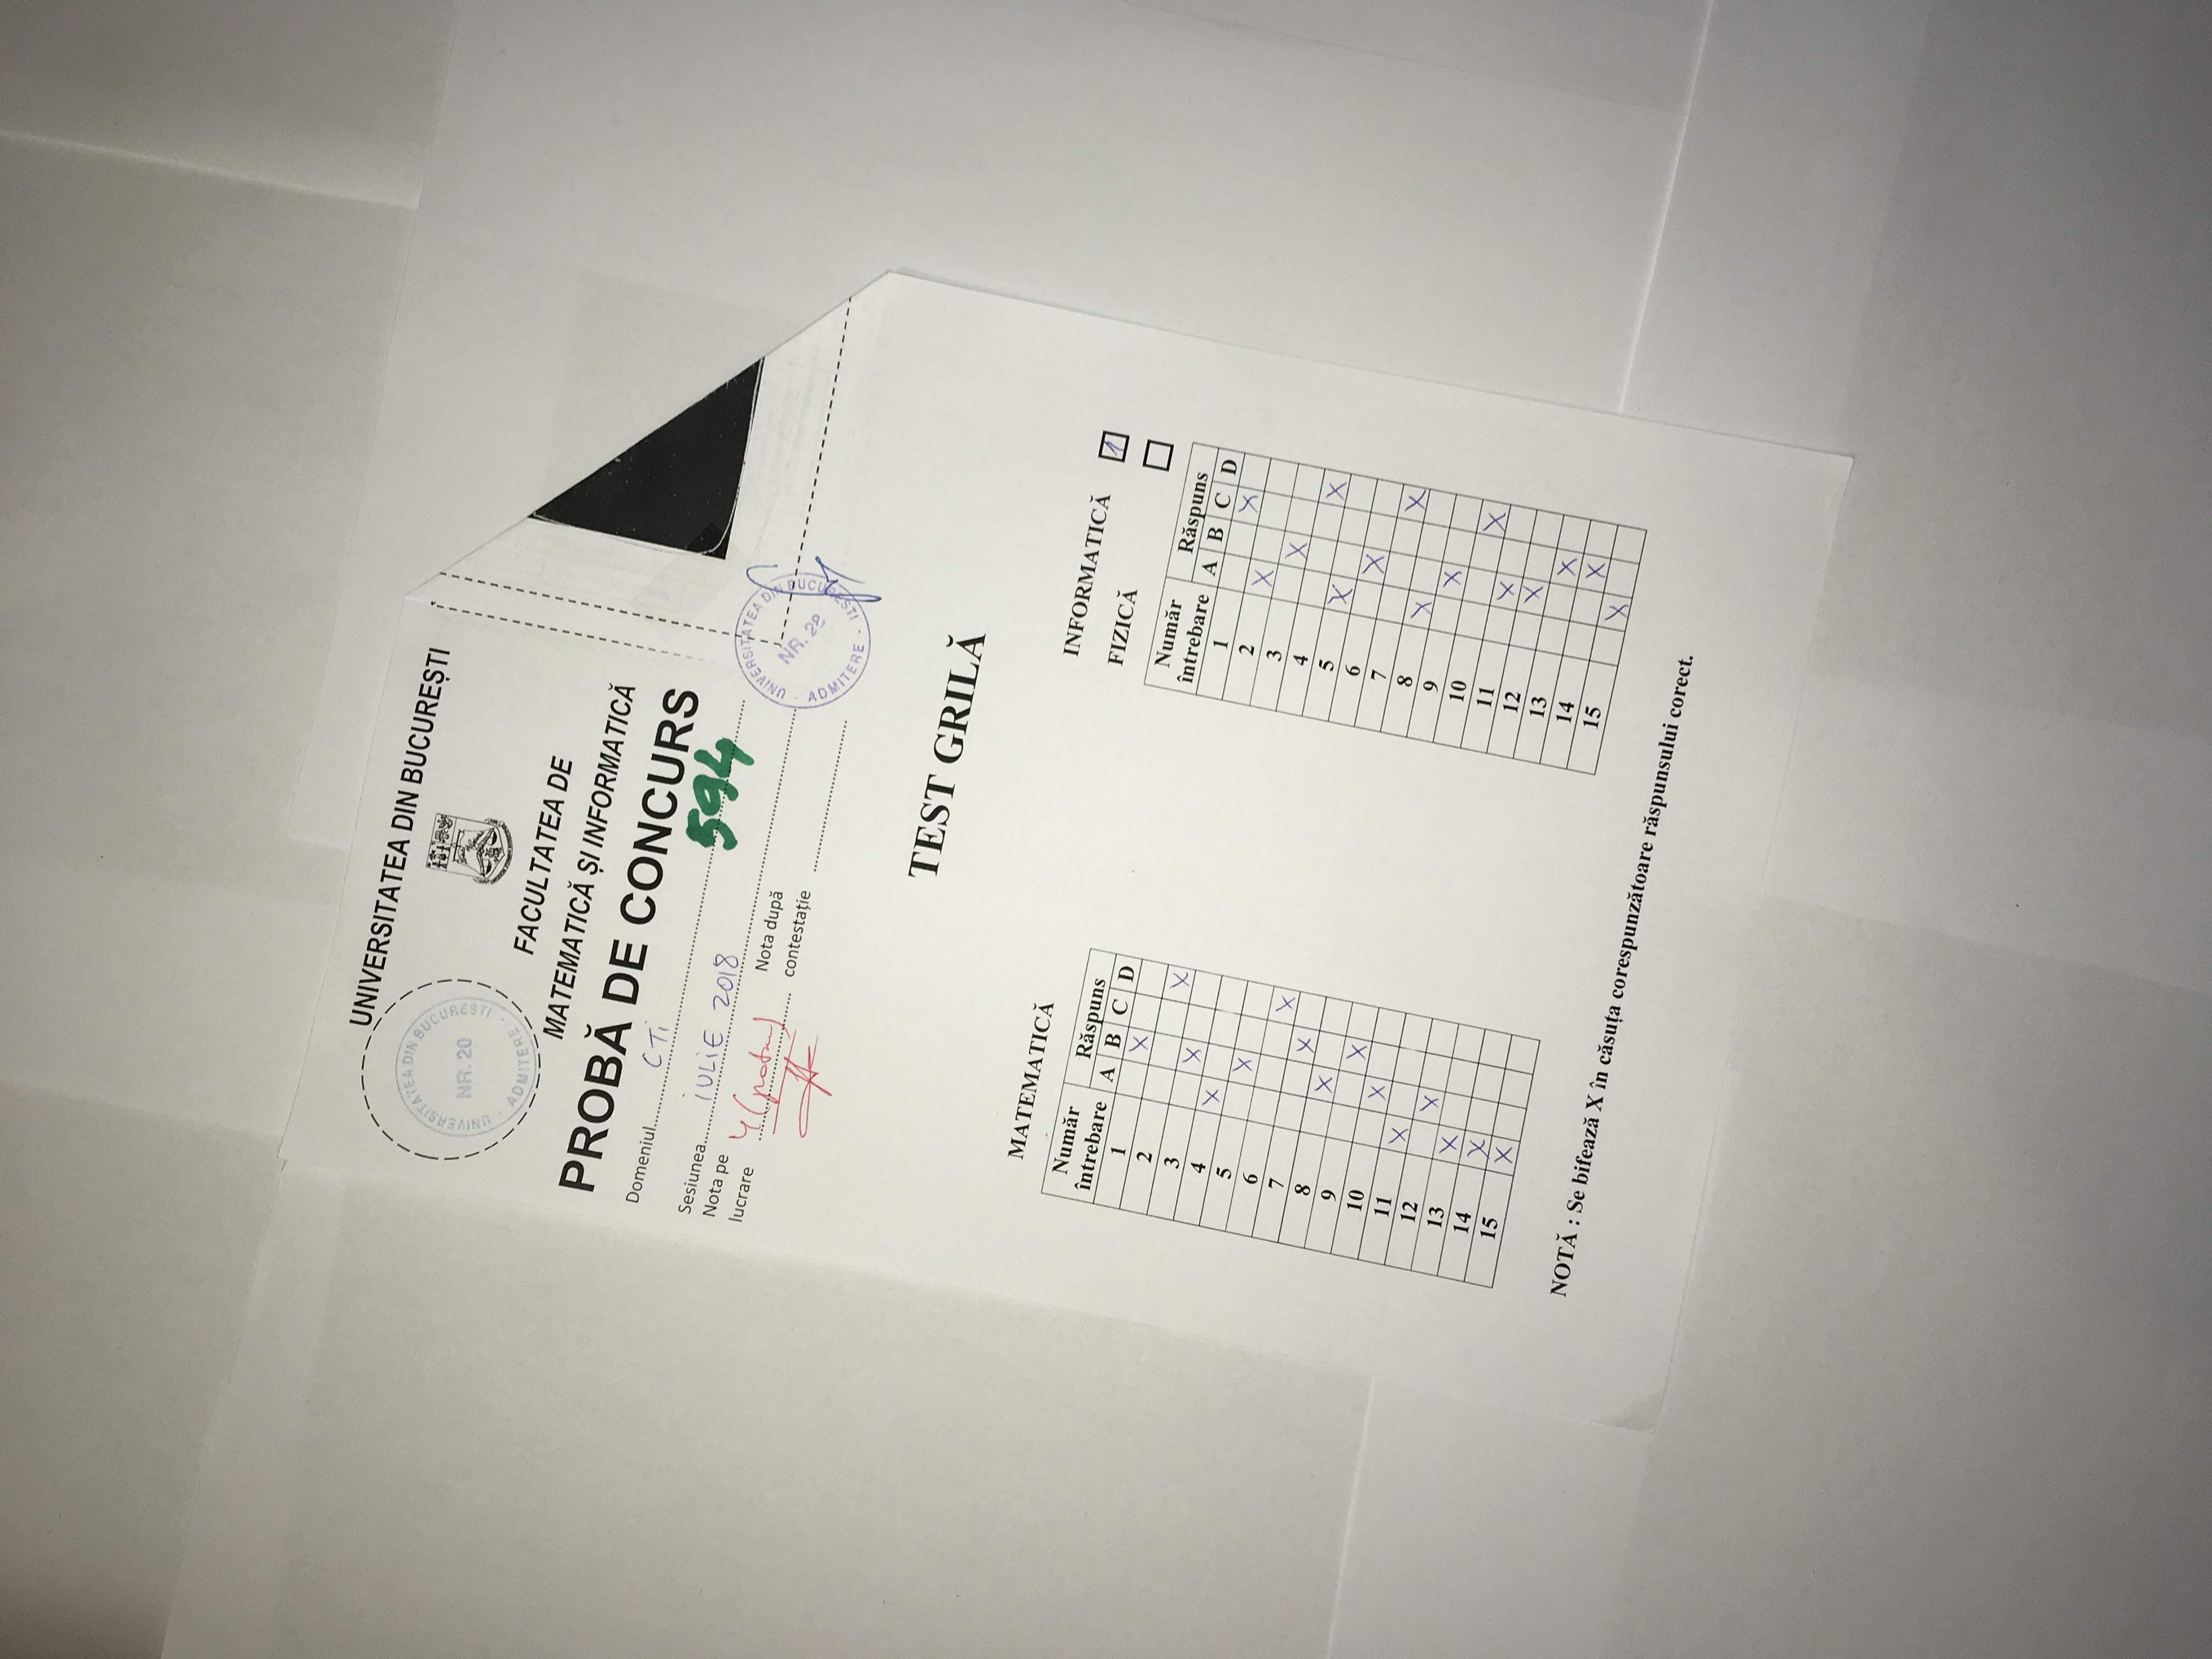 UNIVERSITATEA DIN BUCUREȘTI
UNIVERSITATEA DIN BUCUREȘTI
NR. 20
ADMITERE
FACULTATEA DE
MATEMATICĂ ȘI INFORMATICĂ
PROBĂ DE CONCURS
Domeniul CTi
594
Sesiunea iULiE 2018
Nota pe
lucrare 4 (patru)
Nota după
contestație
UNIVERSITATEA DIN BUCUREȘTI
NR. 28
ADMITERE
TEST GRILĂ
MATEMATICĂ
Număr întrebare Răspuns
A B C D
1 X
2 X
3 X
4 X
5 X
6 X
7 X
8 X
9 X
10 X
11 X
12 X
13 X
14 X
15 X
INFORMATICĂ
FIZICĂ
Număr întrebare Răspuns
A B C D
1 X
2 X
3 X
4 X
5 X
6 X
7 X
8 X
9 X
10 X
11 X
12 X
13 X
14 X
15 X
NOTĂ : Se bifează X în căsuța corespunzătoare răspunsului corect.